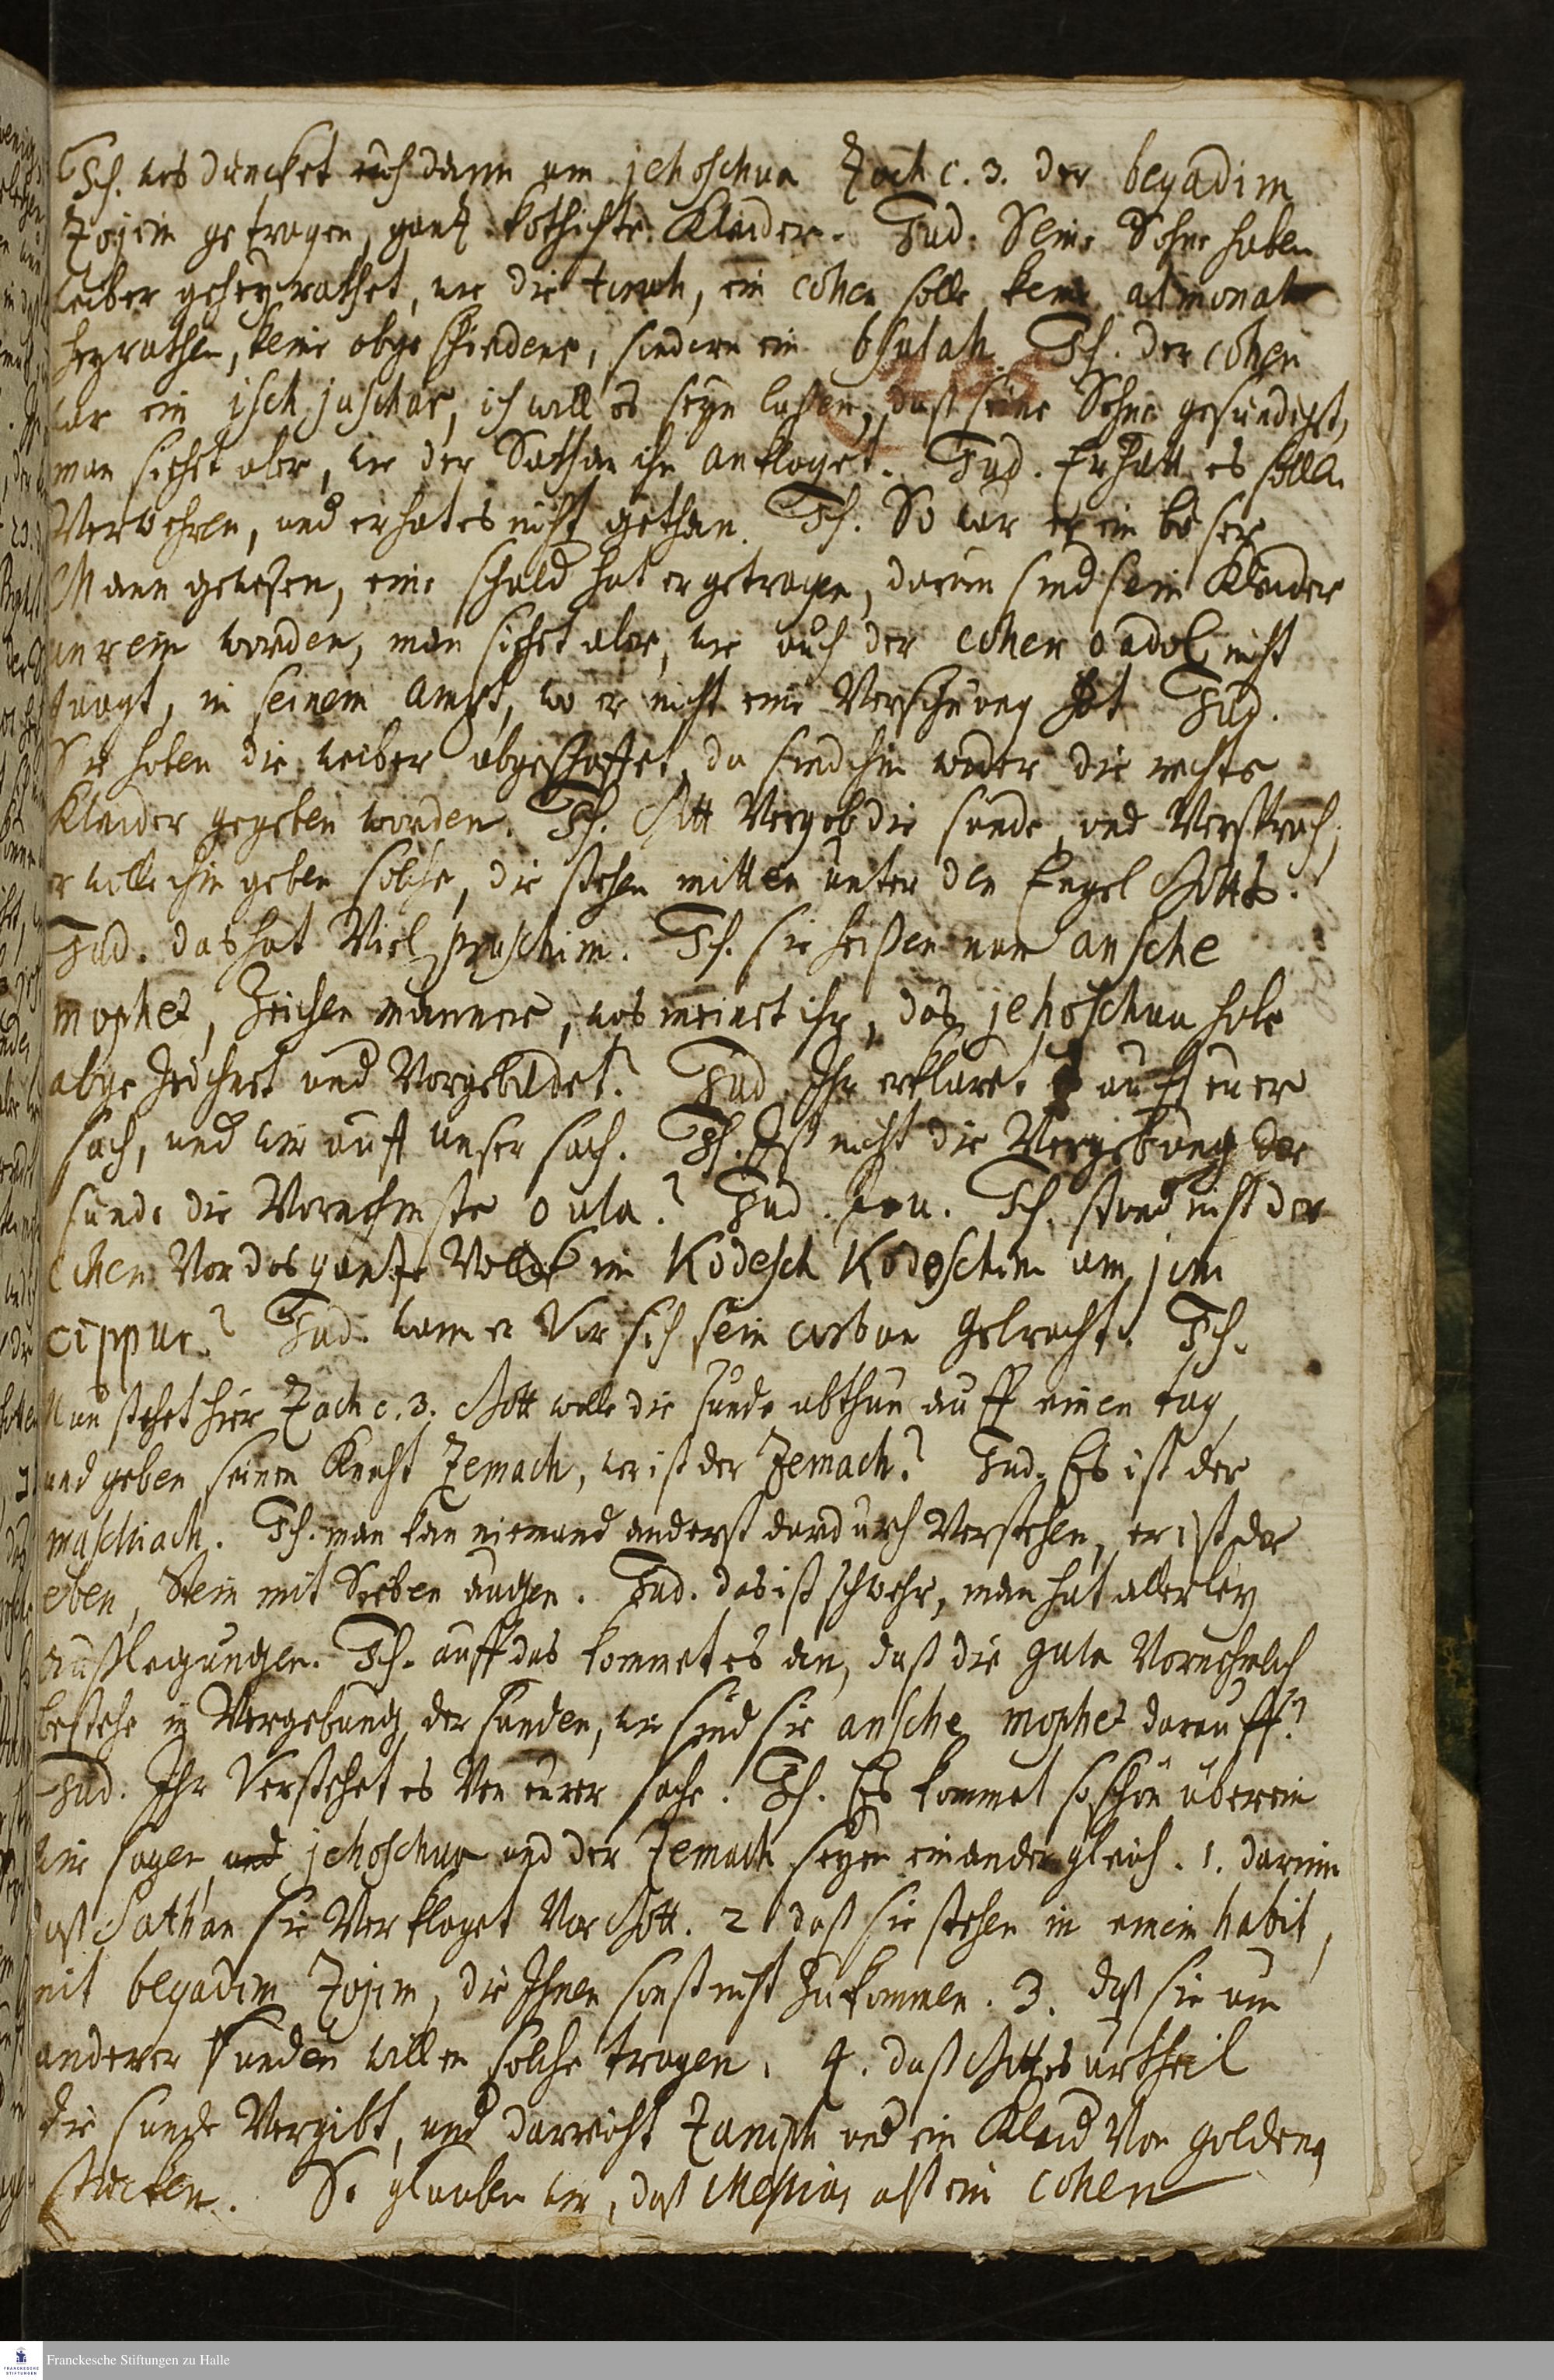 Ich. was düncket euch dann um jehoschua Zach c. 3. der begadim
Zojim getragen, gantz kothichte Kleider. Jud. Seine Söhne haben
weiber geheyrathet, wie die torah, ein cohen solle keine almonah
heyrathen, keine abgeschiedene, sondern ein bsulah. Ich. der cohen
war ein isch juschar, ich will es seyn laßen, daß seine Söhne gesündigt,
man siehet aber, wie der Sathan ihn anklaget. Jud. Er hatt es sollen
Verwehren, und er hat es nicht gethan. Ich. So war er ein böser
Mann gewesen, eine schuld hat er getragen, darum sind sein Kleider
unrein worden, man sichet aber, wie auch der cohen gadol nicht
taugt, in seinem ampt, wo er nicht eine Versöhnung hat Jud.
Sie haben die weiber abgeschaffet, da sind ihm wider die rechte
Kleider gegeben worden. Ich. Gott Vergab die sünde, und Versprach,
er wolle ihm geben solche, die stehen mitten unter den Engel Gottes.
Jud. das hat Viel pruschim. Ich. sie heißen nun ansche
mophet, Zeichen männer, was meinet ihr, das jehoschua habe
abgezeichnet und Vorgebildet? Jud. Ihr erkläret auff euer
sach, und wir auff unser sach. Ich. Ist nicht die Vergebung der
sünde die Vornehmste gula? Jud. Ja. Ich. stund nicht der
cohen Vor das gantze Volck im Kodesch Kodoschim am jom
cippur? Jud. wann er Vor sich sein corban gebracht. Ich.
Nun stehet hier Zach c. 3. Gott wolle die sünde abthun auff einen tag,
und geben seinen Knecht Zemach, wer ist der Zemach? Jud. Es ist der
maschiach. Ich. man kan niemand anderst dardurch Verstehen, er ist der
eben, Stein mit Sieben augen. Jud. das ist schwehr, man hat allerley
außlegungen. Ich. auff das kommet es an, daß die gula Vornehmlich
bestehe in Vergebung der sünden, wie sind sie ansche mophet darauff?
Jud. Ihr Verstehet es Von eurer sache. Ich. Es kommet so schön überein
wir sagen, und jehoschua und der Zemach seyen einander gleich. 1. darinn
daß Sathan sie Verklaget Vor Gott. 2 daß sie stehen in einem habit,
mit begadim Zojim, die Ihnen sonst nicht zukommen. 3. daß sie um
anderer sünden willen solche tragen. 4. daß Gottes urtheil
die sünde Vergibt, und darreicht Zaniph und ein Kleid Von golden
stücken. So glauben wir, daß Messias als ein cohen
Franckesche Stiftungen zu Halle